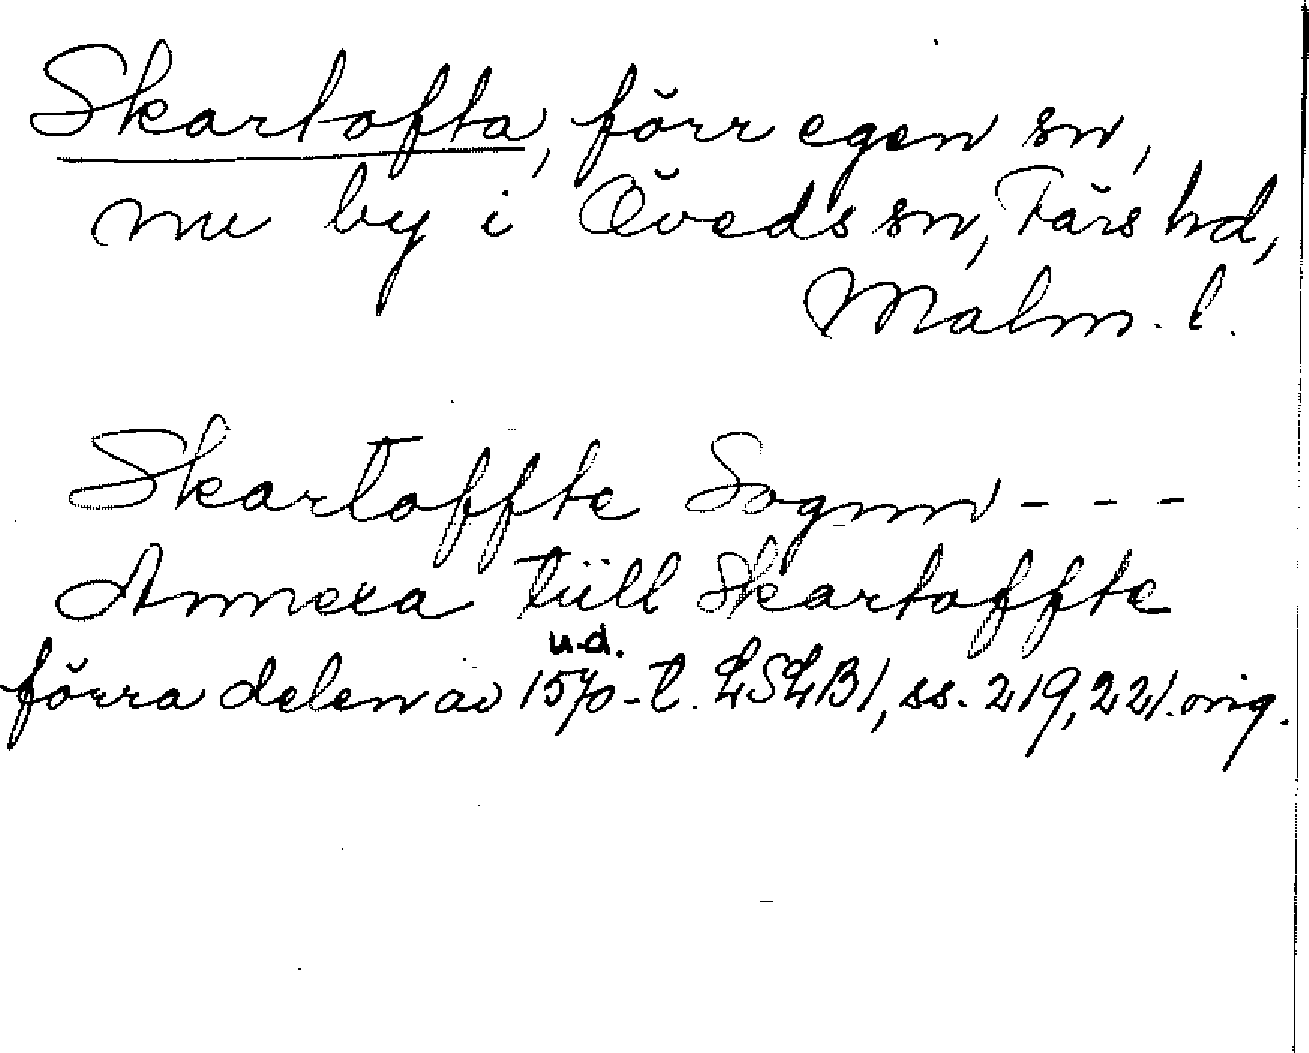 Skartofta, förr egen sn,
nu by i Öveds sn, Färs hd,
Malm. l.
Skartoffte Sognn - - -
Annexa tiill Skartoffte
u.d.
förra delen av 1570-t. LSLB1, ss. 219, 221. orig.